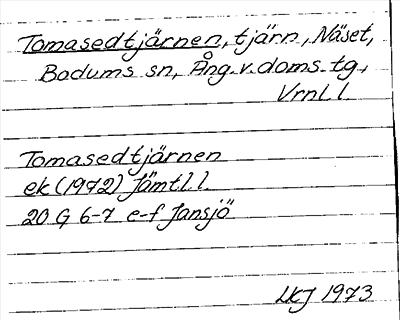 Tomasedtjärnen, tjärn, Näset,
Bodums sn, Ång. v. doms. tg,
Vrnl. l
Tomasedtjärnen
ek (1972) Jämtl. l.
20 G 6-7 e-f Jansjö
LKJ 1973